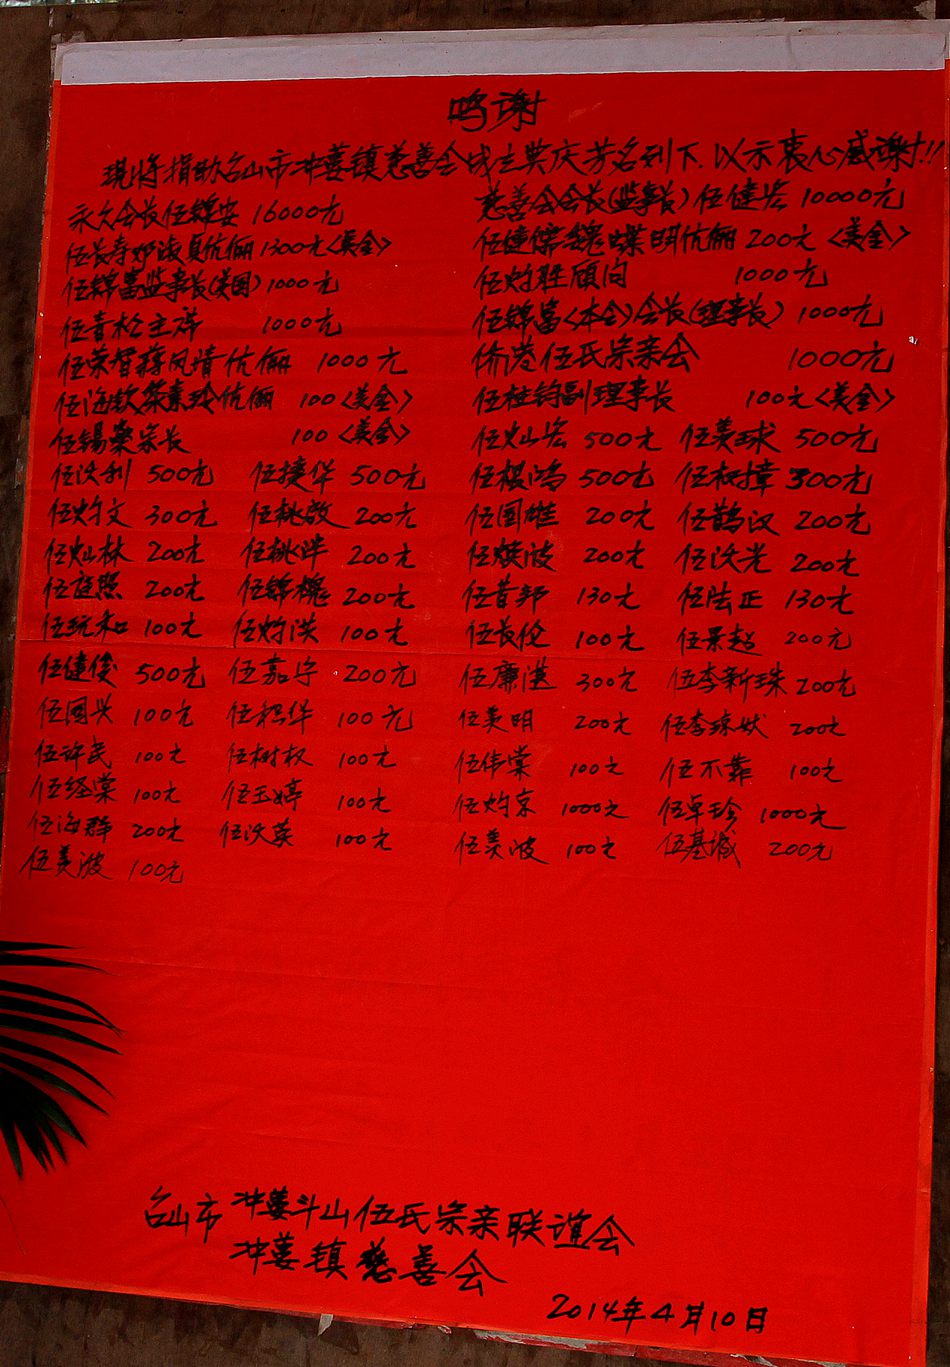 鸣谢
现将捐助台山市冲蒌镇慈善会成立典庆芳名列下.以示衷心感谢!!
永久会长伍锦安 16000元 慈善会会长(监事长)伍健宏 10000元
伍长寿邓淑贞伉俪 1300元<美金> 伍健儒 蝶明伉俪 200元<美金>
伍锦富监事长(美国) 1000元 伍灼胜顾问 1000元
伍青松主祥 1000元 伍锦富<本会>会长(理事长) 1000元
伍荣督蒋凤清伉俪 1000元 侨港伍氏宗亲会 1000元
伍海钦 素玲伉俪 100<美金> 伍柱钧副理事长 100元<美金>
伍锡燊宗长 100<美金> 伍灿宏 500元 伍美球 500元
伍沃利 500元 伍捷华 500元 伍根鸿 500元 伍树璋 300元
伍灼文 300元 伍桃啟 200元 伍国雄 200元 伍鹊汉 200元
伍灿林 200元 伍桃洋 200元 伍焕波 200元 伍沃光 200元
伍庭照 200元 伍锦槐 200元 伍昔邦 130元 伍陆正 130元
伍玩和 100元 伍灼洪 100元 伍长伦 100元 伍景超 200元
伍健俊 500元 伍嘉宇 200元 伍廉湛 300元 伍李新珠 200元
伍国兴 100元 伍积华 100元 伍美明 200元 伍李琼 200元
伍许民 100元 伍树权 100元 伍伟棠 100元 伍不靠 100元
伍经棠 100元 伍玉婷 100元 伍灼京 1000元 伍卓珍 1000元
伍海群 200元 伍沃英 100元 伍美波 100元 伍基诚 200元
伍美波 100元
台山市冲蒌斗山伍氏宗亲联谊会
冲蒌镇慈善会
2014年4月10日